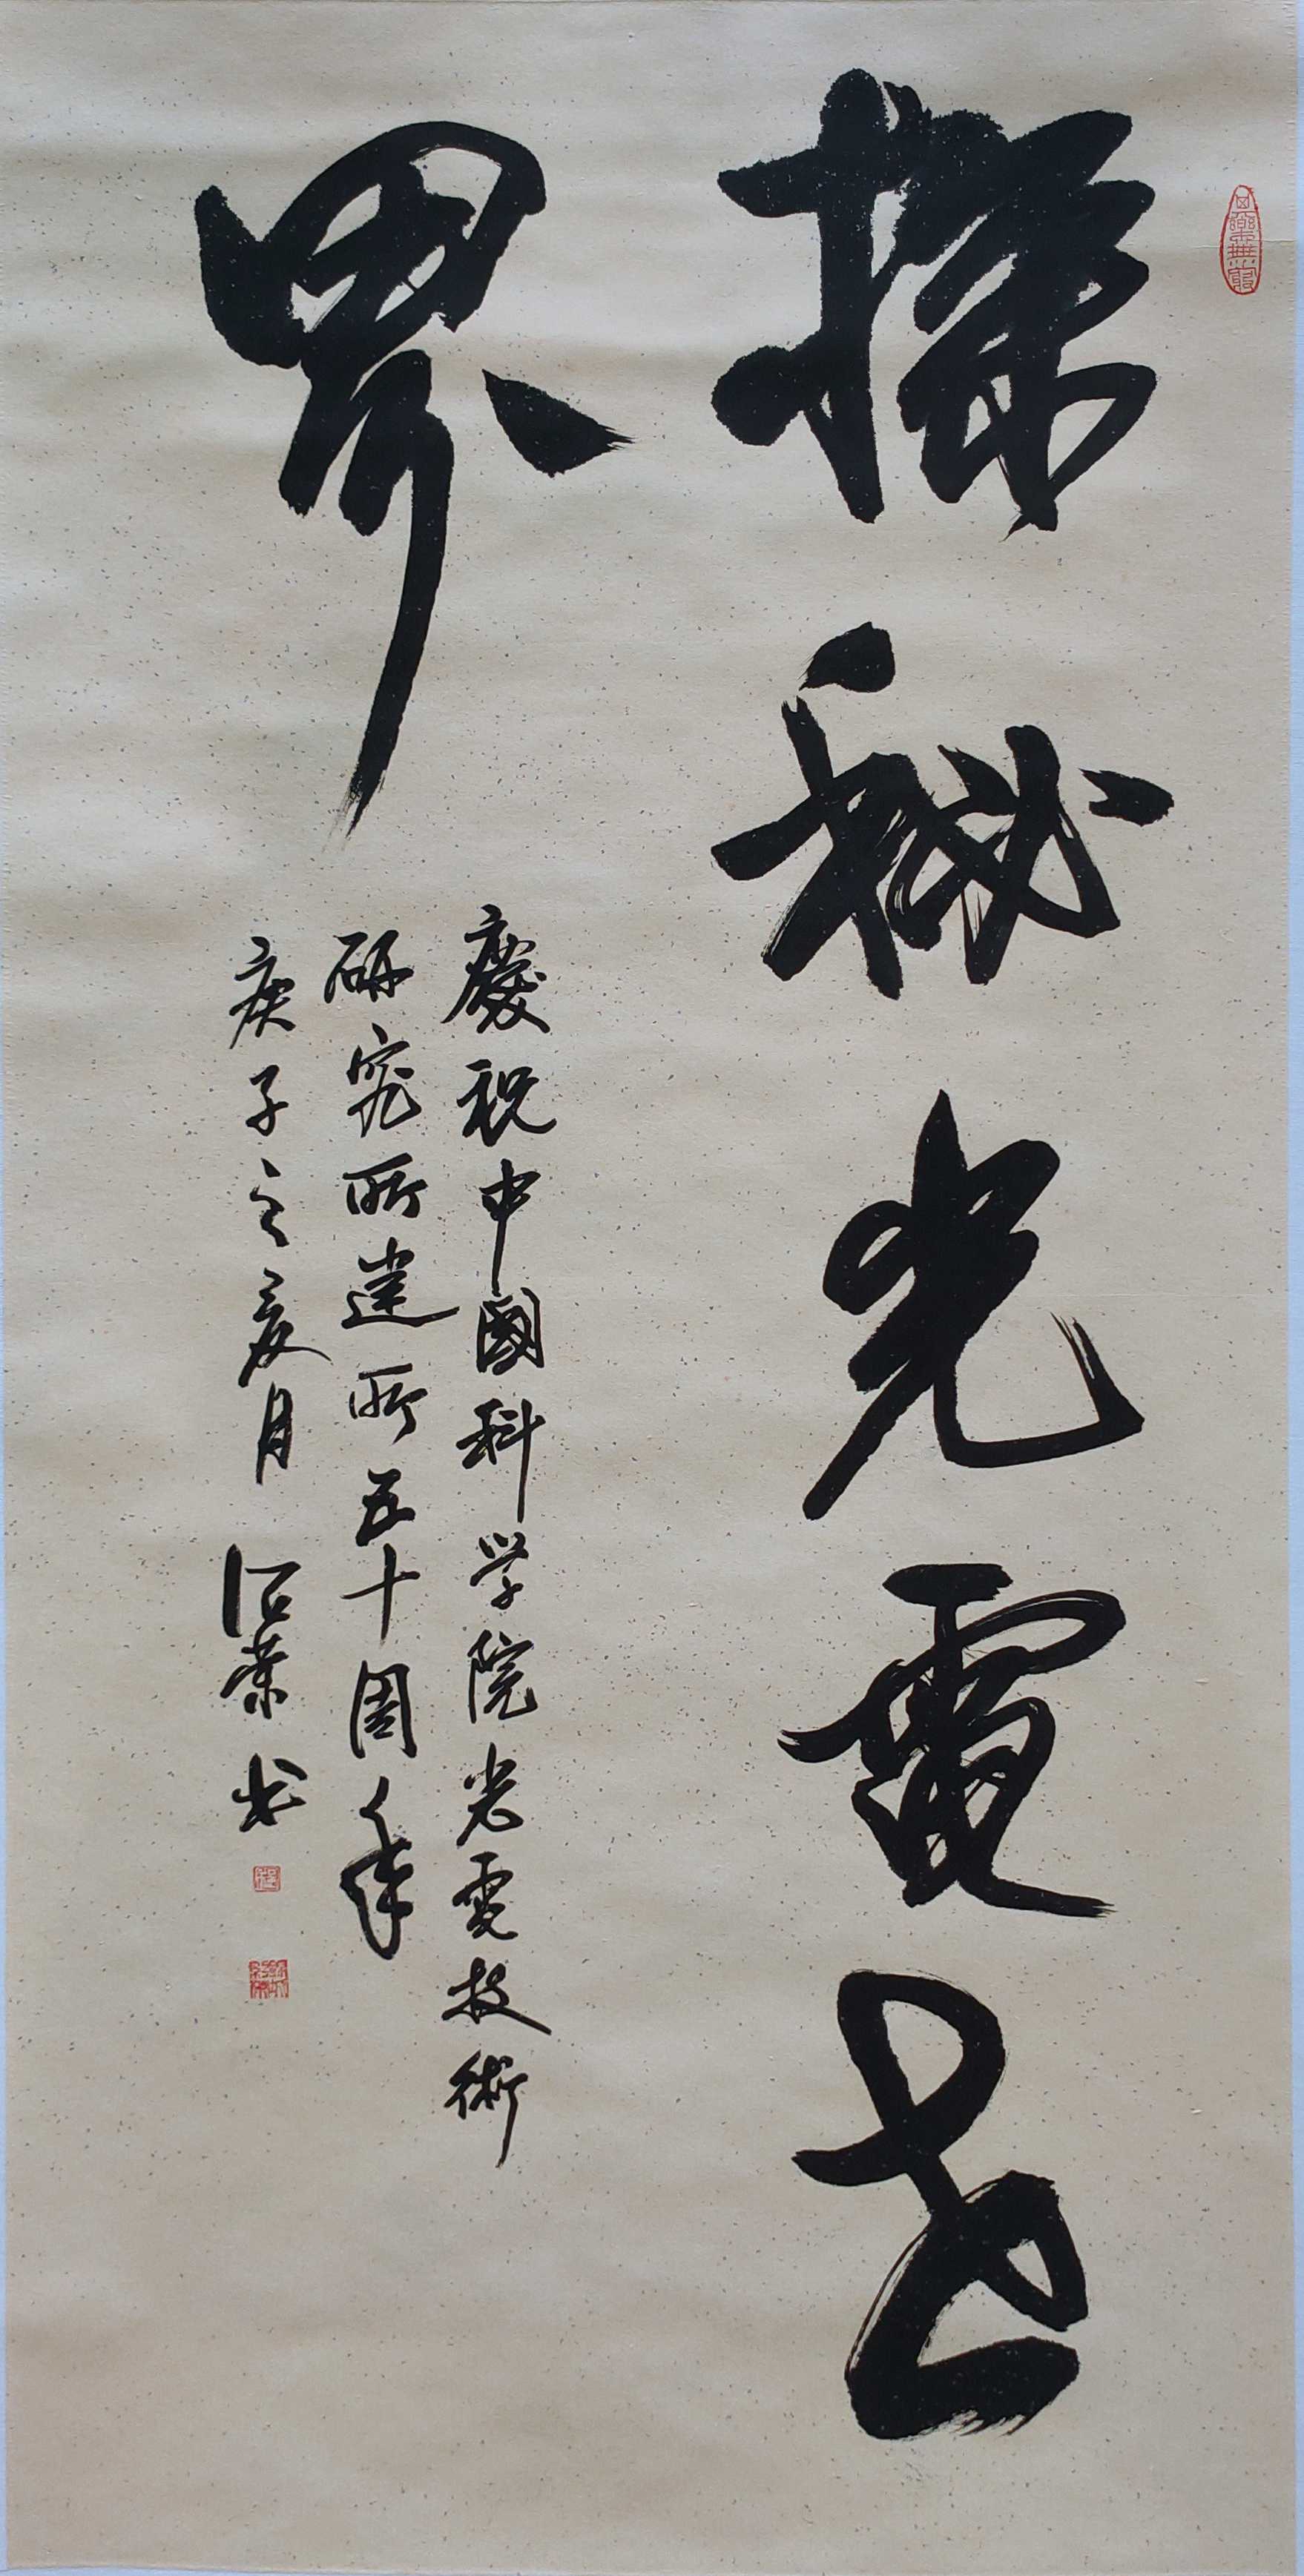 探秘光電世
界
慶祝中國科学院光電技術
研究所建所五十周年
庚子之夏月 榮书